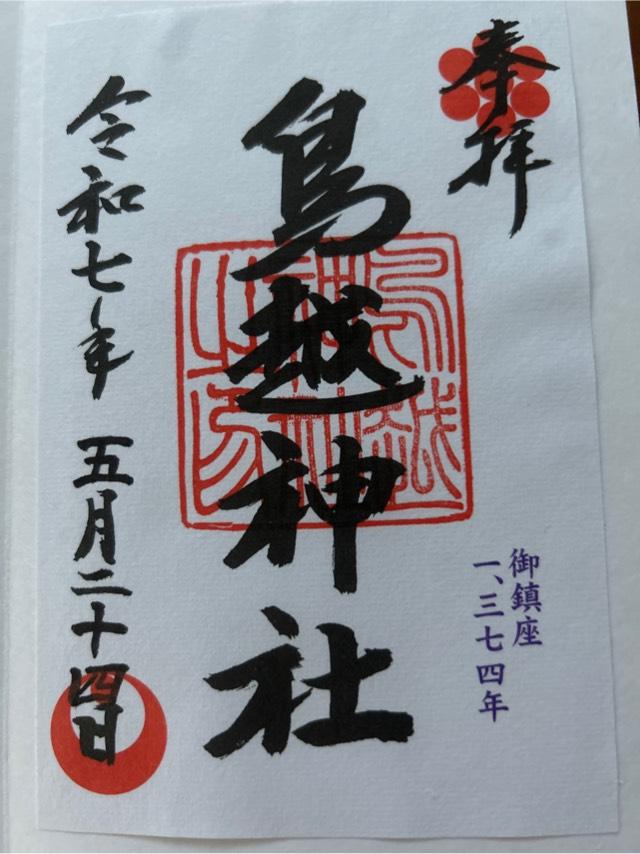 奉拝
鳥越神社
御鎮座
一、三七四年
令和七年 五月二十四日